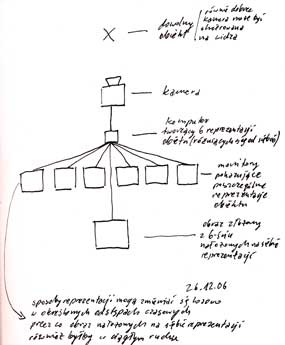 dowolny
obiekt
równie dobrze
kamera może być
skierowana
na widza
kamera
komputer
tworzący 6 reprezentacji
obiektu (różniących się od siebie)
monitory
pokazujące
poszczególne
reprezentacje
obiektu
obraz złożony
z 6-ściu
nałożonych na siebie
reprezentacji
26.12.06
sposoby reprezentacji mogą zmieniać się losowo
w określonych odstępach czasowych
przez co obraz nałożonych na siebie reprezentacji
również byłby w ciągłym ruchu